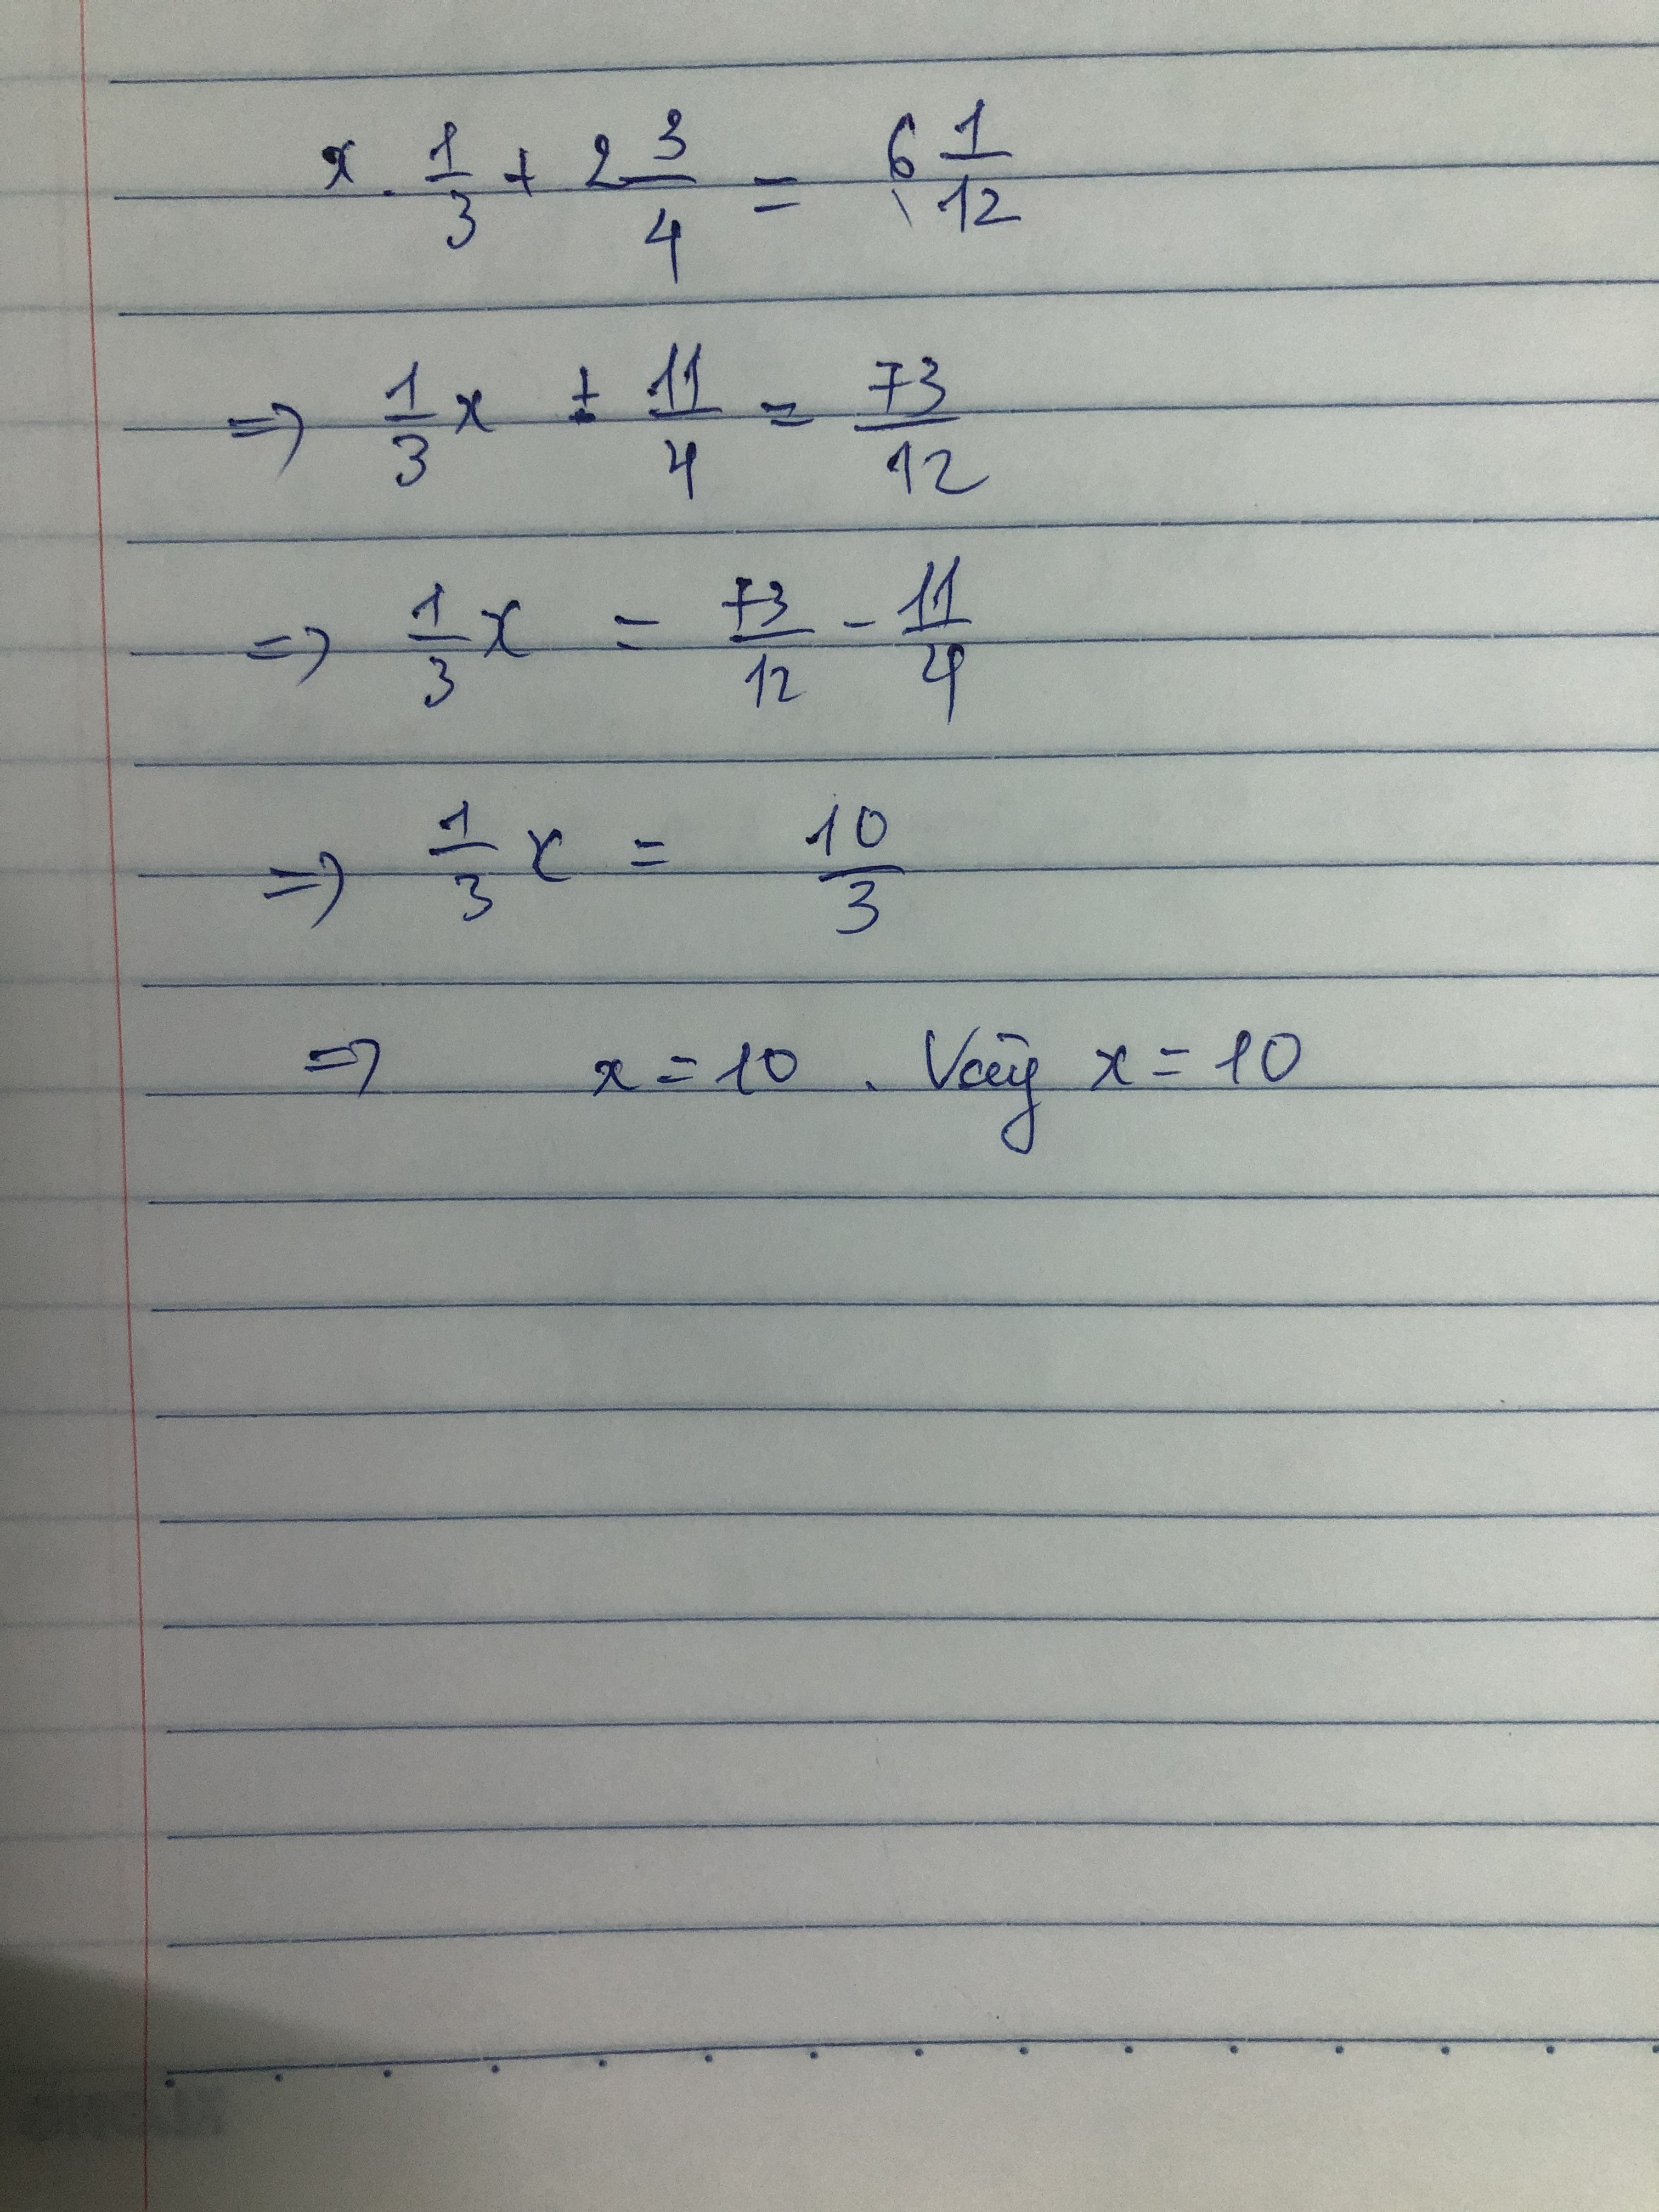 x . 1/3 + 2 3/4 = 6 1/12
=> 1/3 x + 11/4 = 73/12
=> 1/3 x = 73/12 - 11/4
=> 1/3 x = 10/3
=> x = 10 . Vậy x = 10